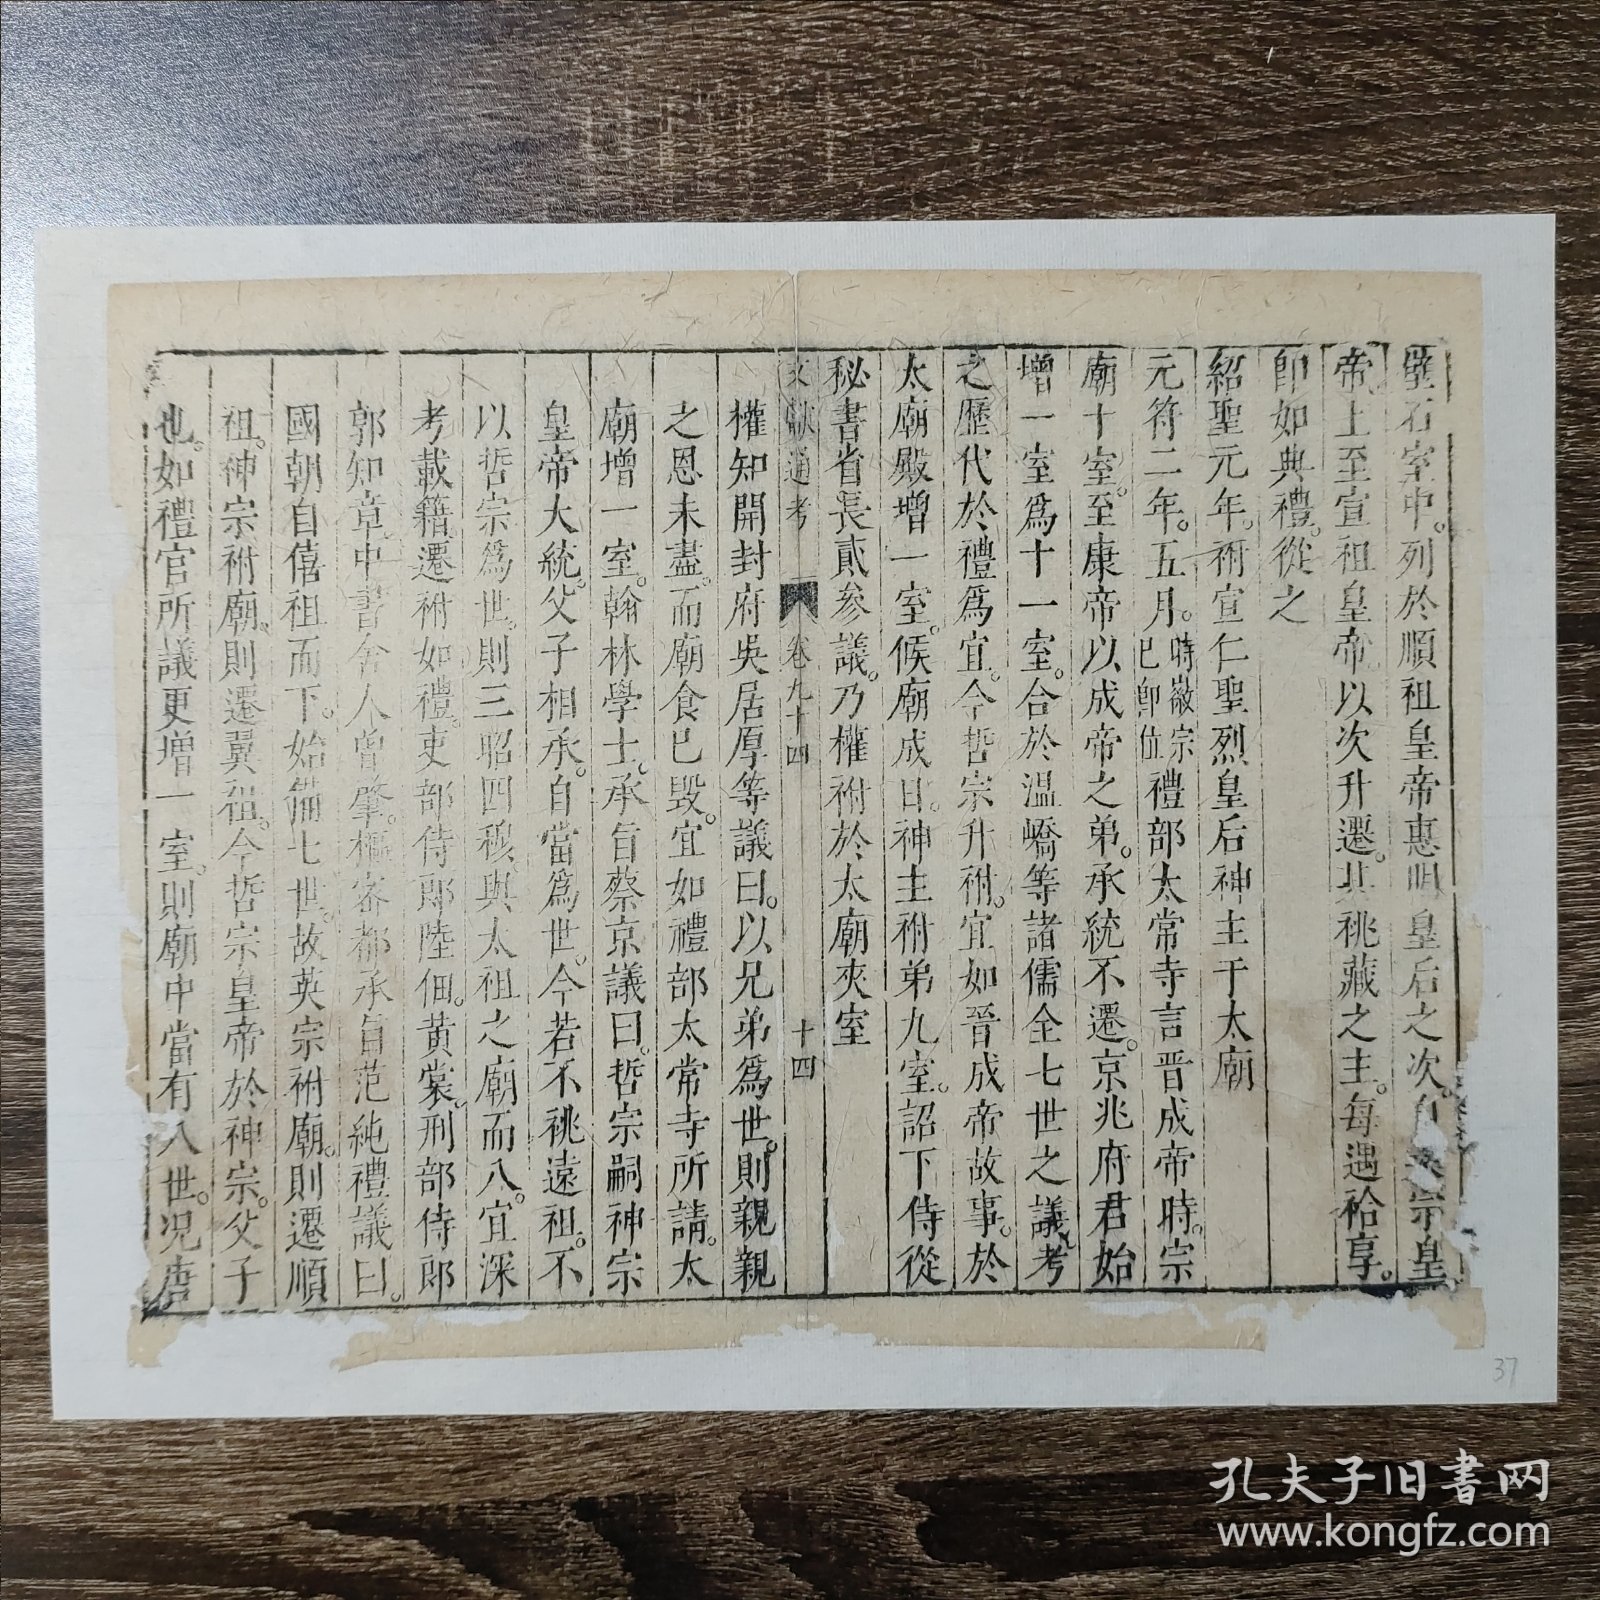 壁石室中。列於順祖皇帝惠明皇后之次。自宗皇
帝。上至宣祖皇帝。以次升遷。其祧藏之主。每遇祫享。
卽如典禮。從之
紹聖元年。祔宣仁聖烈皇后神主于太廟
元符二年。五月。時徽宗已卽位禮部太常寺言晉成帝時。宗
廟十室。至康帝以成帝之弟。承統不遷。京兆府君始
增一室爲十一室。合於溫嶠等諸儒全七世之議。考
之歷代於禮爲宜。今哲宗升祔。宜如晉成帝故事。於
太廟殿增一室。候廟成日。神主祔弟九室。詔下侍從
秘書省長貳參議。乃權祔於太廟夾室
文獻通考 卷九十四 十四
權知開封府吳居厚等議曰。以兄弟爲世。則親親
之恩未盡。而廟食已毀。宜如禮部太常寺所請。太
廟增一室。翰林學士承旨蔡京議曰。哲宗嗣神宗
皇帝大統。父子相承。自當爲世。今若不祧遠祖。不
以哲宗爲世。則三昭四穆。與太祖之廟而八。宜深
考載籍。遷祔如禮。吏部侍郎陸佃。黃裳。刑部侍郎
郭知章。中書舍人曾肇。樞密都承旨范純禮議曰。
國朝自僖祖而下。始備七世。故英宗祔廟。則遷順
祖。神宗祔廟。則遷翼祖。今哲宗皇帝於神宗。父子
也。如禮官所議更增一室。則廟中當有八世。况唐
37
孔夫子旧书网
www.kongfz.com